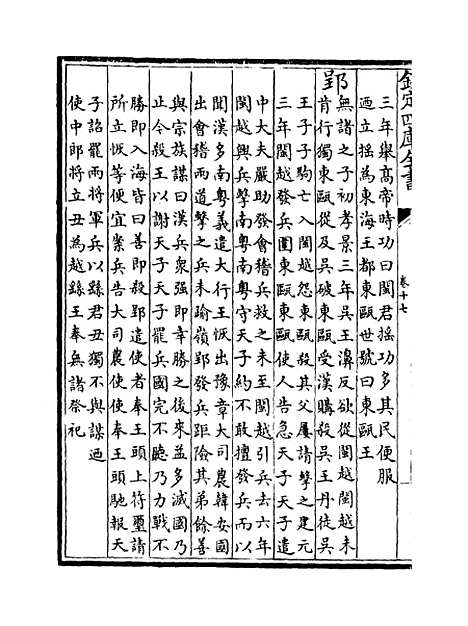 欽定四庫全書
卷十七
三年舉高帝時功曰閩君揺功多其民便服
迺立揺為東海王都東甌世號曰東甌王
郢
無諸之子初孝景三年吳王濞反欲從閩越閩越未
肯行獨東甌從及吳破東甌受漢購殺吳王丹徒吳
王子子駒亡入閩越怨東甌殺其父屢請擊之建元
三年閩越發兵圍東甌東甌使人告急天子天子遣
中大夫嚴助發會稽兵救之未至閩越引兵去六年
閩越興兵擊南粤南粤守天子約不敢擅發兵而以
聞漢多南粤義遣大行王恢出豫章大司農韓安國
出會稽兩道擊之兵未踰嶺郢發兵距險其弟餘善
與宗族謀曰漢兵衆强即幸勝之後來益多滅國乃
止今殺王以謝天子天子罷兵國完不聽乃力戰不
勝即入海皆曰善即殺郢遣使者奉王頭上符璽請
所立恢等便宜案兵告大司農使使奉王頭馳報天
子詔罷兩將軍兵以繇君丑獨不與謀迺
使中郎將立丑為越繇王奉無諸祭祀